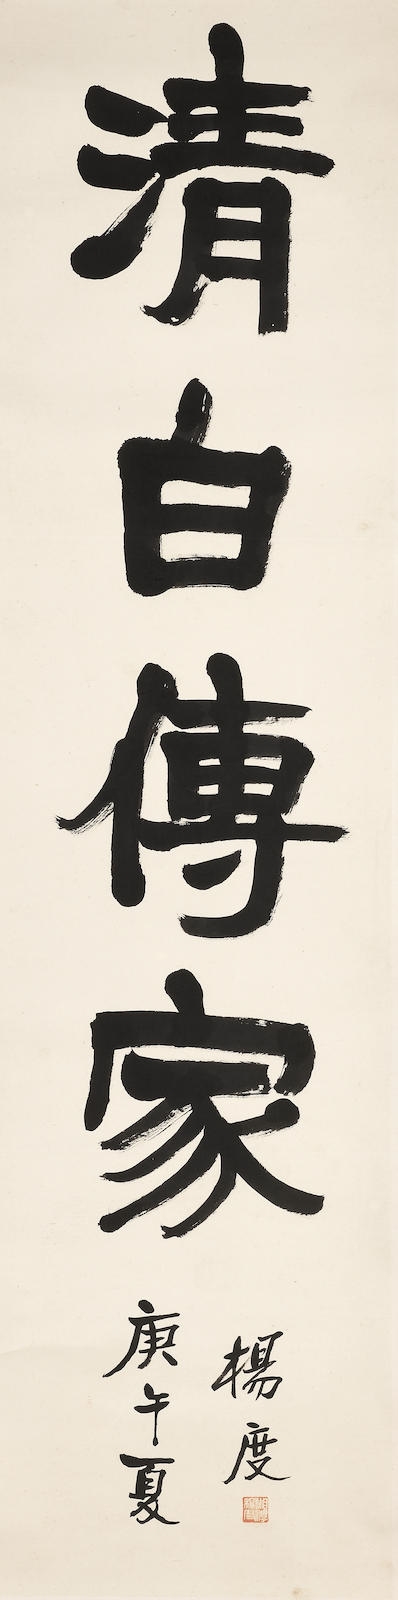 清白傳家
楊度
庚午夏